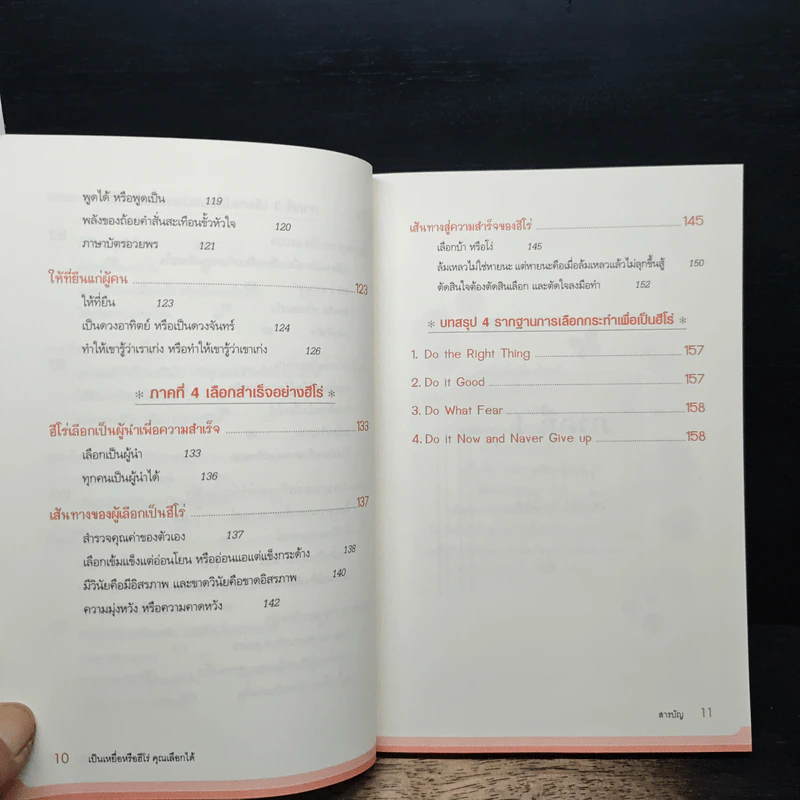 พูดได้ หรือพูดเป็น 119
พลังของถ้อยคำสั่นสะเทือนขั้วหัวใจ 120
ภาษาบัตรอวยพร 121
ให้ที่ยืนแก่ผู้คน 123
ให้ที่ยืน 123
เป็นดวงอาทิตย์ หรือเป็นดวงจันทร์ 124
ทำให้เขารู้ว่าเราเก่ง หรือทำให้เขารู้ว่าเขาเก่ง 126
* ภาคที่ 4 เลือกสำเร็จอย่างฮีโร่ *
ฮีโร่เลือกเป็นผู้นำเพื่อความสำเร็จ 133
เลือกเป็นผู้นำ 133
ทุกคนเป็นผู้นำได้ 136
เส้นทางของผู้เลือกเป็นฮีโร่ 137
สำรวจคุณค่าของตัวเอง 137
เลือกเข้มแข็งแต่อ่อนโยน หรืออ่อนแอแต่แข็งกระด้าง 138
มีวินัยคือมีอิสรภาพ และขาดวินัยคือขาดอิสรภาพ 140
ความมุ่งหวัง หรือความคาดหวัง 142
10 เป็นเหยื่อหรือฮีโร่ คุณเลือกได้
เส้นทางสู่ความสำเร็จของฮีโร่ 145
เลือกบ้า หรือโง่ 145
ล้มเหลวไม่ใช่หายนะ แต่หายนะคือเมื่อล้มเหลวแล้วไม่ลุกขึ้นสู้ 150
ตัดสินใจต้องตัดสินเลือก และตัดใจลงมือทำ 152
* บทสรุป 4 รากฐานการเลือกกระทำเพื่อเป็นฮีโร่ *
1. Do the Right Thing 157
2. Do it Good 157
3. Do What Fear 158
4. Do it Now and Naver Give up 158
สารบัญ 11